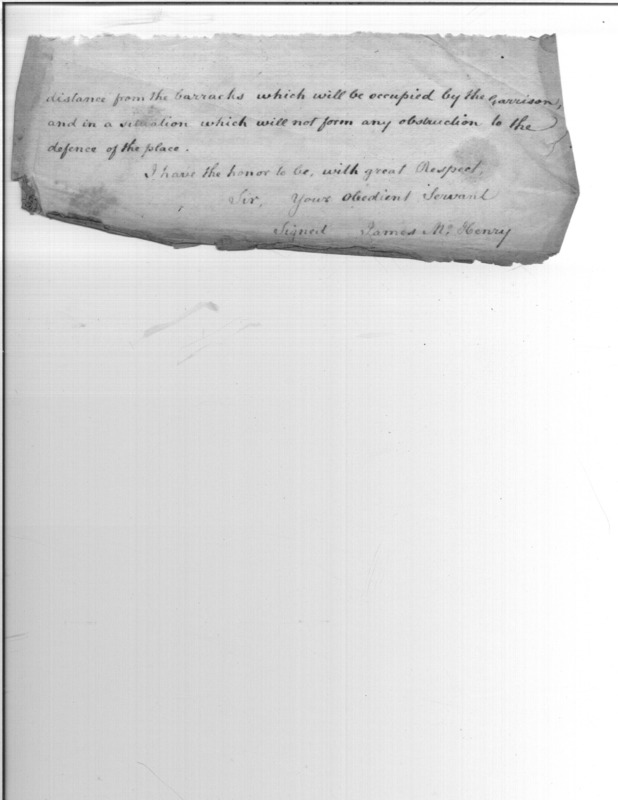 distance from the barracks which will be occupied by the Garrison,
and in a situation which will not form any obstruction to the
defence of the place.
I have the honor to be, with great Respect,
Sir, Your Obedient Servant
Signed James Mc Henry